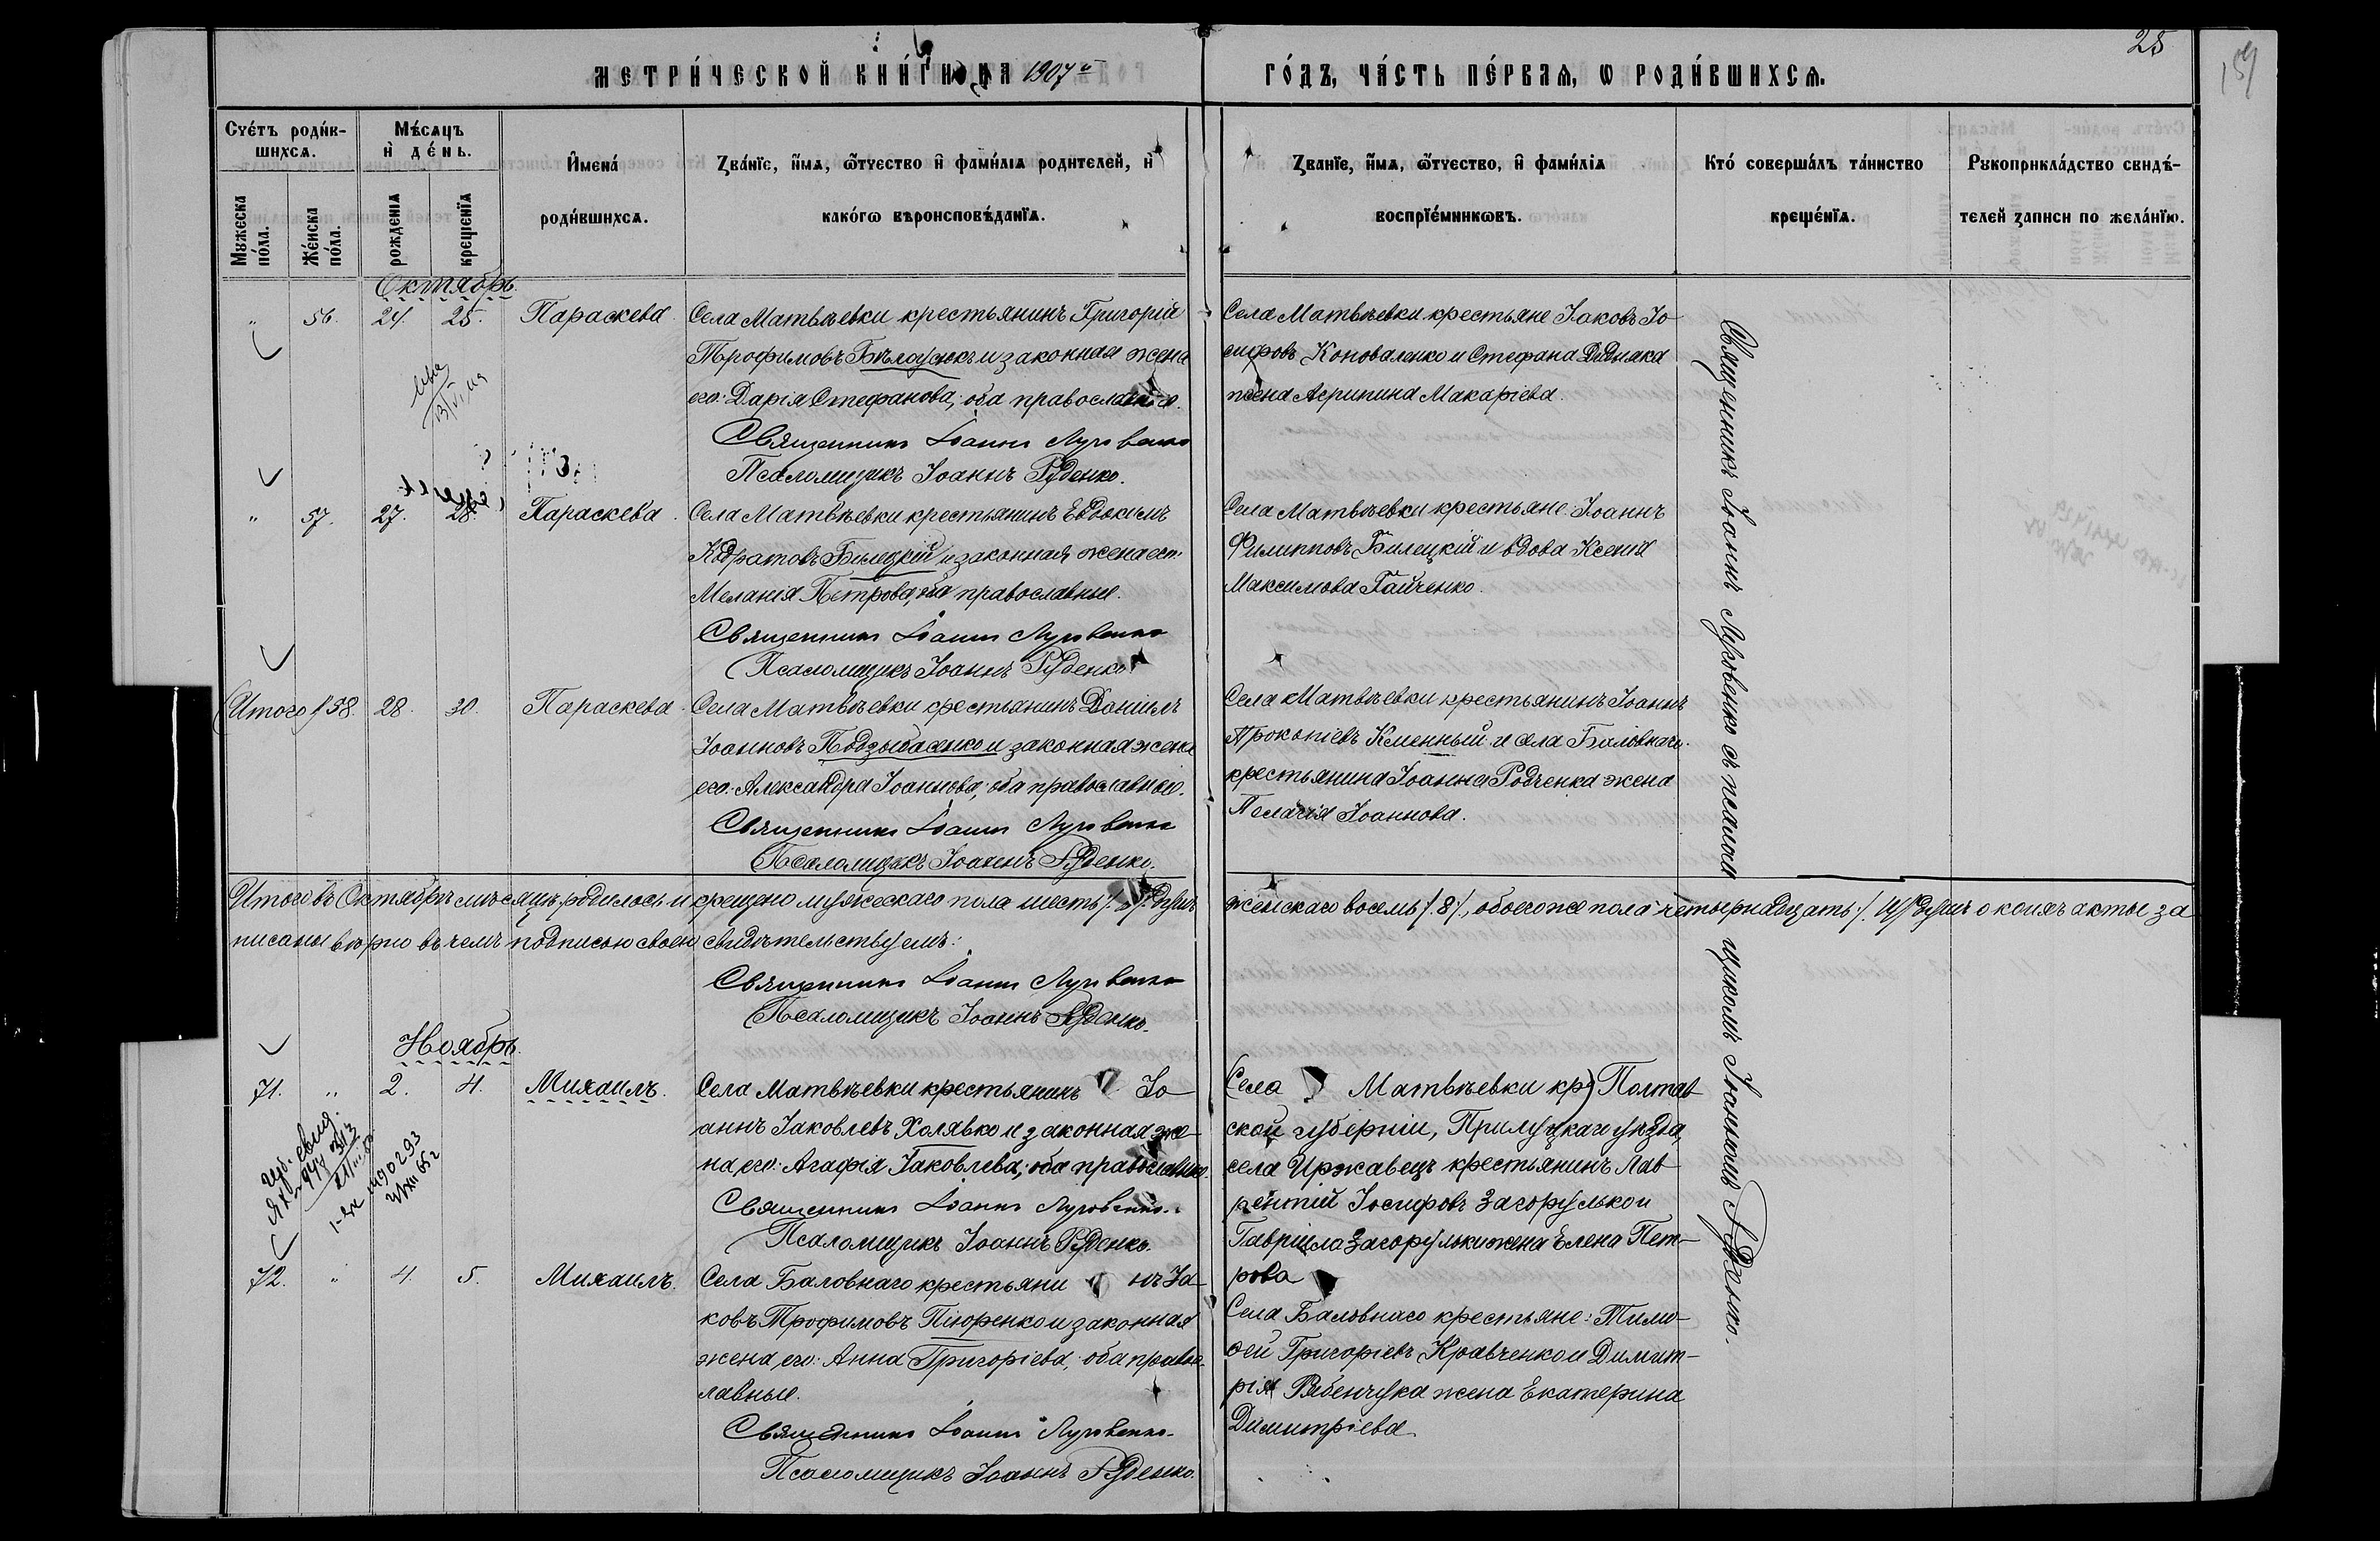 25
159
МЕТРИ́ЧЕСКОЙ КНИ́ГИ НА 1907й ГО́ДЪ, ЧА́СТЬ ПЕ́РВАЯ, Ѡ РОДИ́ВШИХСЯ.
Счéтъ роди́в-
шихсѧ.
Мꙋжеска по́ла.
Же́нска по́ла.
Мѣ́сѧцъ
и҆ де́нь.
рожденїѧ
крещенїѧ
И҆мена́
роди́вшихсѧ.
Зва́нїе, и҆́мѧ, ѻ҆́тчество и҆ фами́лїѧ родителей, и҆
како́гѡ вѣроисповѣ́данїѧ.
Званїе, и҆́мѧ, ѻ҆́тчество, и҆ фами́лїѧ
воспрїе́мникѡвъ.
Кто́ соверша́лъ та́инство
креще́нїѧ.
Рꙋкоприкла́дство свидѣ́-
телей записи по жела́нїю.
Октябрь.
" 56. 24. 25. Параскева. Села Матвѣевки крестьянинъ Григорій
Трофимовъ Бѣлоусъ и законная жена
его: Дарія Стефанова; оба православные.
Священникъ Іоаннъ Луговенко
Псаломщикъ Іоаннъ Руденко.
Села Матвѣевки крестьяне Іаковъ Іо-
сифовъ Коноваленко и Стефана Дидняка
жена Агрипина Макаріева.
" 57. 27. 28. Параскева. Села Матвѣевки крестьянинъ Евдокимъ
Кодратовъ Билецкій и законная жена его:
Меланія Петрова, оба православные.
Священникъ Іоаннъ Луговенко
Псаломщикъ Іоаннъ Руденко
Села Матвѣевки крестьяне: Іоаннъ
Филипповъ Билецкій и вдова Ксенія
Максимова Гайченко.
Итого / 58. 28. 30. Параскева. Села Матвѣевки крестьянинъ Даніилъ
Іоанновъ и законная жена
его: Александра Іоаннова; оба православные.
Священникъ Іоаннъ Луговенко
Псаломщикъ Іоаннъ Руденко.
Села Матвѣевки крестьянинъ Іоаннъ
Прокопіевъ и села Баловнаго
крестьянина Іоанна Родченка жена
Пелагія Іоаннова.
Итого въ Октябрѣ мѣсяцѣ родилось и крещено мужескаго пола шесть душъ женскаго восемь /.8./, обоего же пола четырнадцать /.14./ душъ о коихъ акты за
писаны вѣрно въ чемъ подписью своею свидѣтельствуемъ:
Священникъ Іоаннъ Луговенко
Псаломщикъ Іоаннъ Руденко.
Ноябрь.
71. " 2. 4. Михаилъ. Села Матвѣевки крестьянинъ Іо-
аннъ Іаковлевъ Холявко и законная же-
на его: Агафія Іаковлева; оба православные.
Священникъ Іоаннъ Луговенко.
Псаломщикъ Іоаннъ Руденко.
Села Матвѣевки кр) Полтав-
ской губерніи, Прилуцкаго уѣзда,
села Иржавецъ крестьянинъ Лав-
рентій Іосифовъ Загорулько и
Гавріила Загорульки жена Елена Пет-
рова
72. " 4. 5. Михаилъ. Села Баловнаго крестьянинъ Іа-
ковъ Трофимовъ Пюренко и законная
жена его: Анна Григоріева; оба правос-
лавные.
Священникъ Іоаннъ Луговенко.
Псаломщикъ Іоаннъ Руденко.
Села Баловнаго крестьяне: Тимо-
ѳей Григоріевъ Кравченко и Димит-
рія Рябенчука жена Екатерина
Димитріева.
Священникъ Іоаннъ Луговенко съ псалом
щикомъ Іоанномъ Руденко.